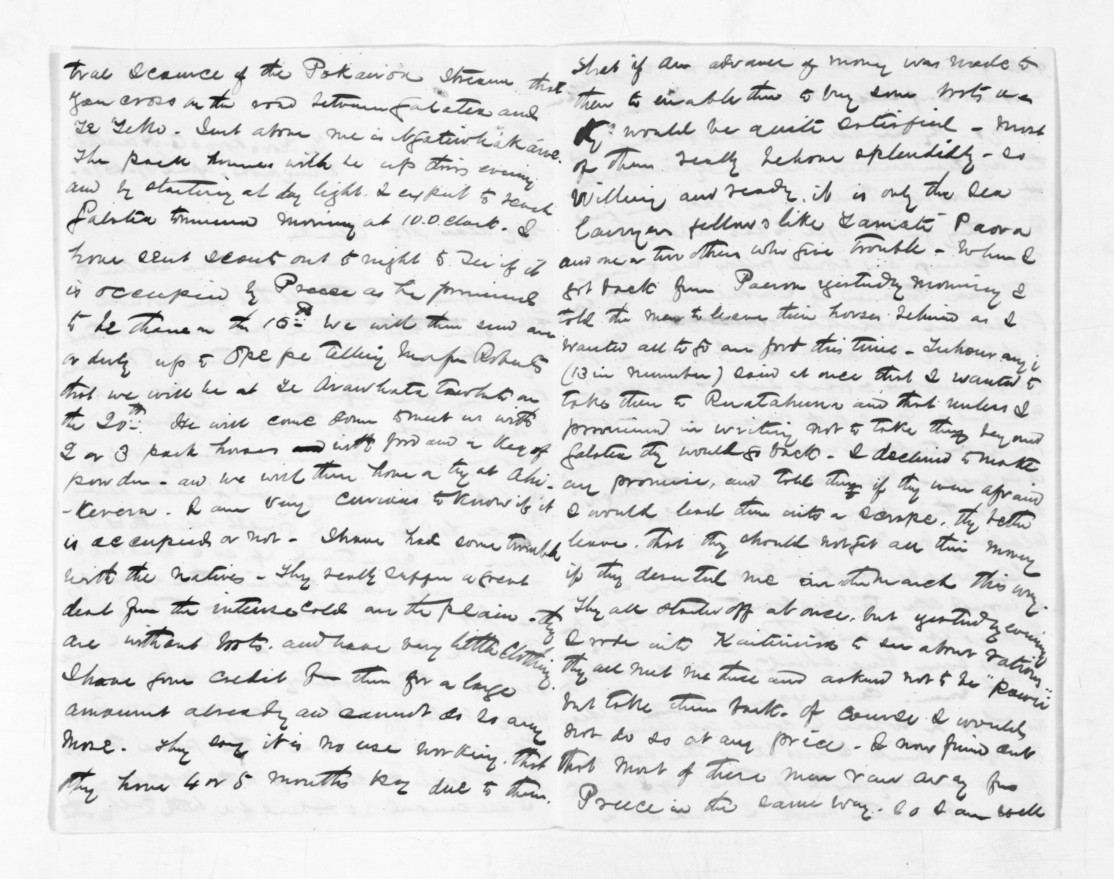 tral source of the Pokairoa Stream that
you cross on the road between Galatea and
Te Teko. Just above me is Ngatiwhakaaue.
The pack horses will be up this evening
and by starting at day light I expect to reach
Galatea tomorrow morning at 10.0 clock. I
have sent scouts out to night to see if it
is occupied by Preece as he promised
to be there on the 15th. We will then send an
orderly up to Opepe telling Major Roberts
that we will be at Te Arawhata tawhiti on
the 20th. He will come down to meet us with
2 or 3 pack horses with food and a keg of
powder - and we will then have a try at Ahi-
-kereru. I am very curious to know if it
is occupied or not - I have had some trouble
with the natives - They really suffer a great
deal from the intense cold on the plain - they
are without boots, and have very little clothing.
I have gone credit for them for a large
amount already and cannot do so any
more. They say it is no use working, that
they have 4 or 5 months pay due to them.
that if an advance of money was made to
them to enable them to buy some boots
they would be quite satisfied - Most
of them really behave splendidly - so
willing and ready, it is only the sea
lawyer fellows like Tamati Paora
and one or two others who give trouble - When I
got back from Paeroa yesterday morning I
told the men to leave their horses behind as I
wanted all to go on foot this time - Tuhourangi
(13 in number) said at once that I wanted to
take them to Ruatahuna and that unless I
promised in writing not to take them beyond
Galatea they would go back - I declined to make
any promise, and told them if they were afraid
I would lead them into a scrape, they better
leave, that they should not get all their money
if they deserted me on the march this way.
They all started off at once, but yesterday evening
I rode into Kaiteriria to see about rations
they all met me there and asked not to be "
but take them back. Of course I would
not do so at any price - I now find out
that most of these men ran away from
Preece in the same way. So I am well